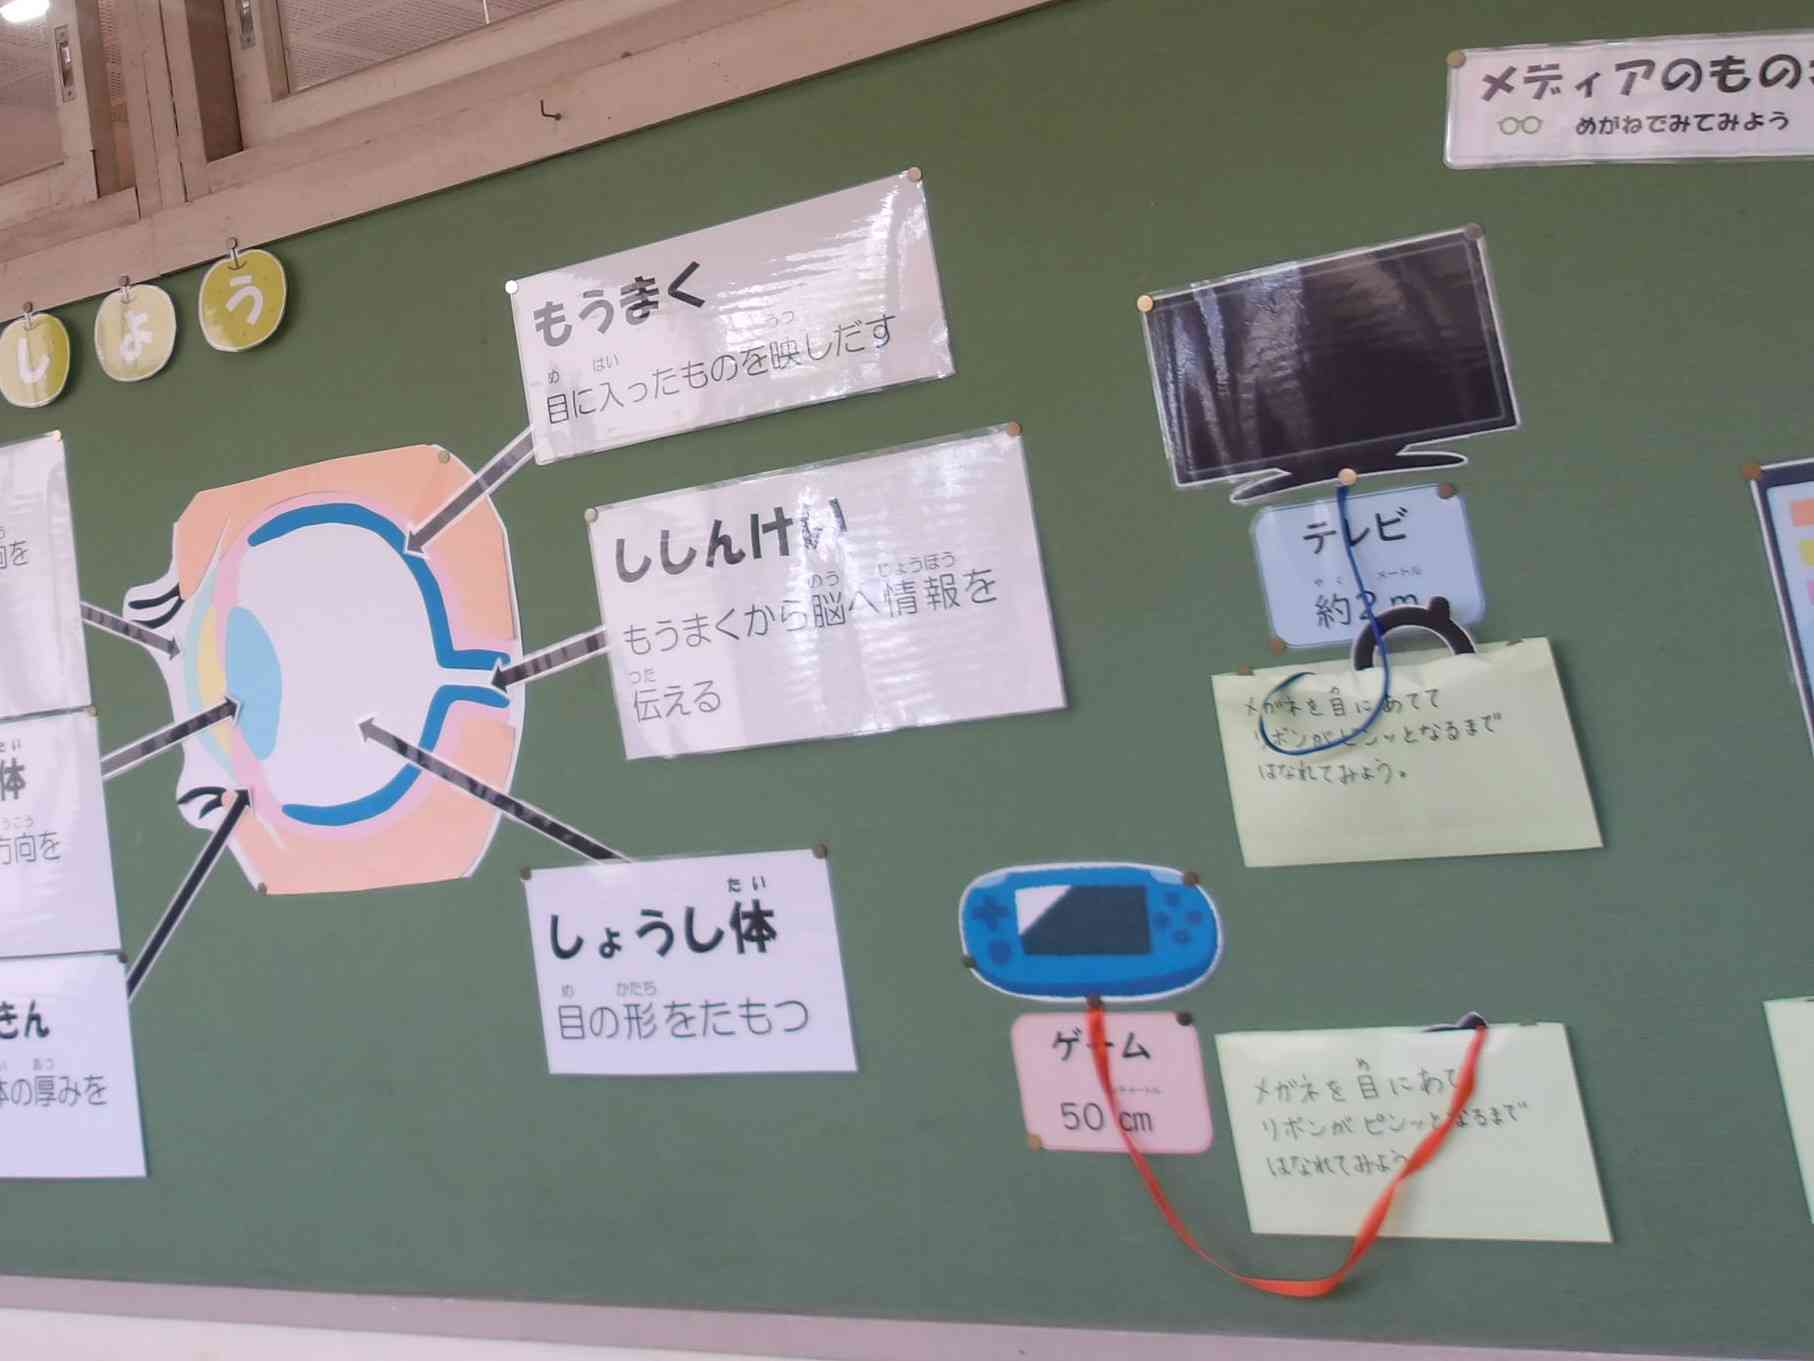 しょう
もうまく
目に入ったものを映しだす
ししんけい
もうまくから脳へ情報を
伝える
しょうし体
目の形をたもつ
向を
体
方向を
きん
体の厚みを
メディアのもの
めがねでみてみよう
テレビ
約2m
メガネを目にあてて
リボンがピンッとなるまで
はなれてみよう。
ゲーム
50cm
メガネを目にあて
リボンがピンッとなるまで
はなれてみよう